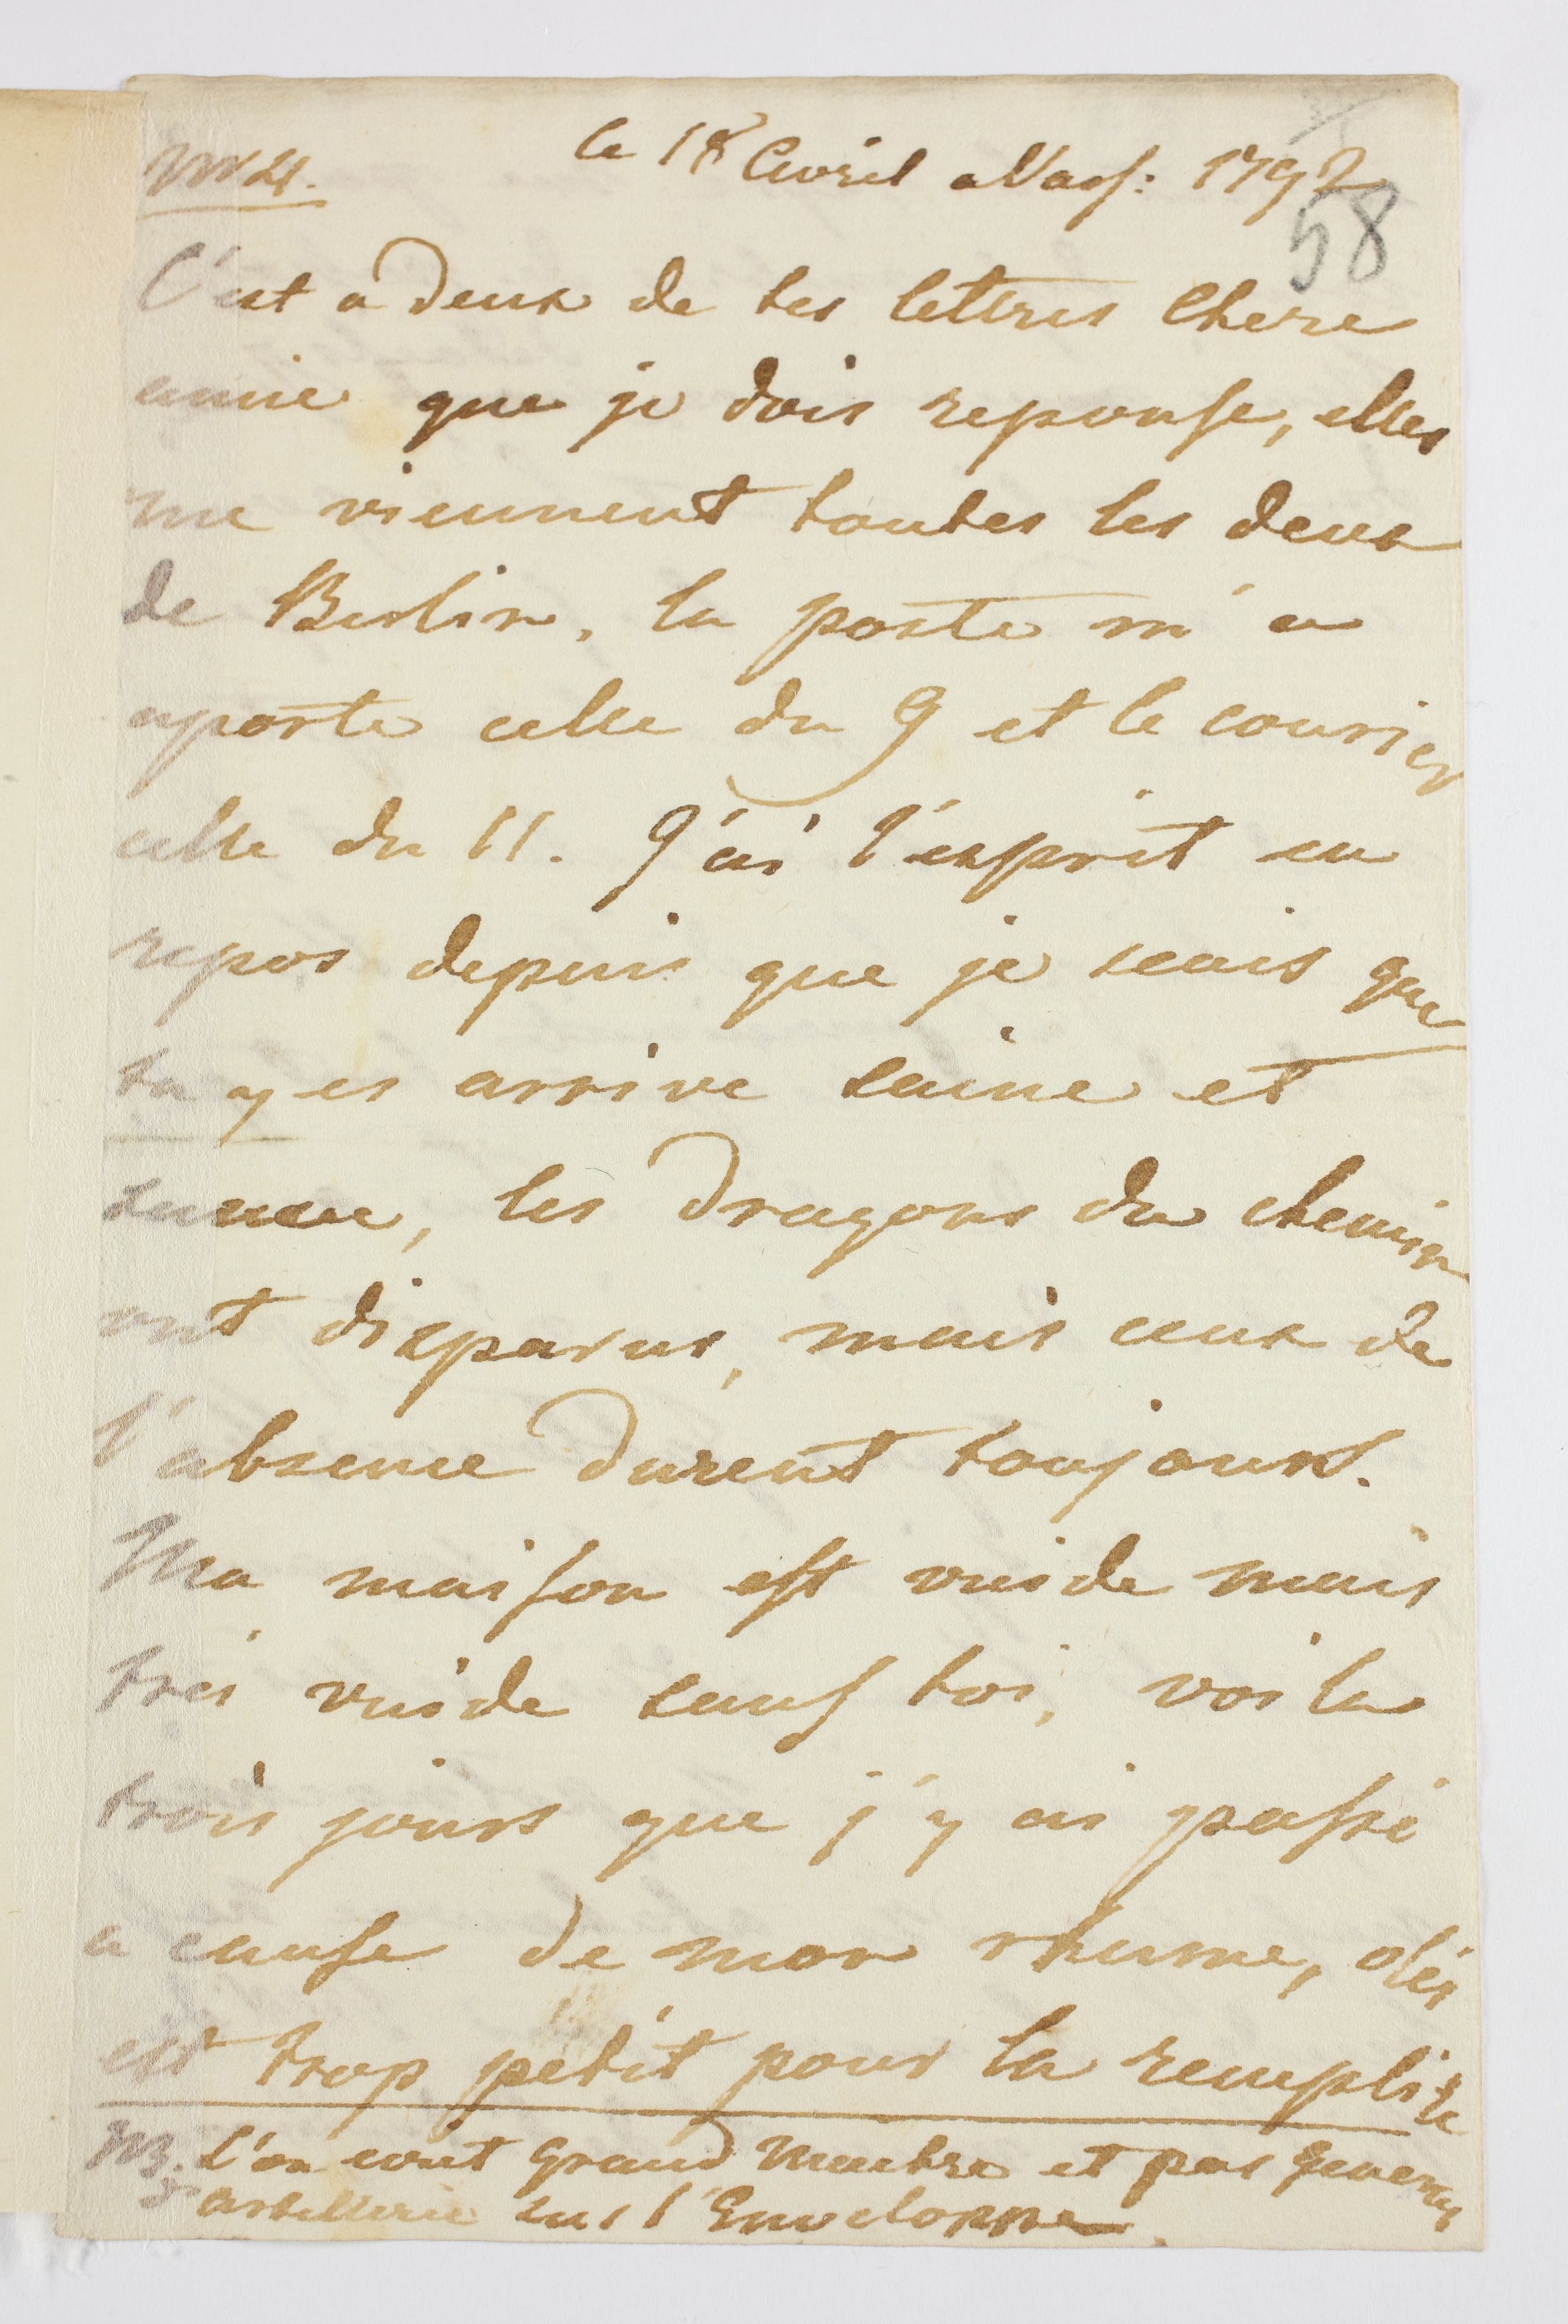 le 18 Avril a Vars: 1792
58
C'est a deux de tes lettres chere
amie que je dois reponse, elles
me viennent toutes les deux
de Berlin, la poste m'a
aporte celle du 9 et le courier
celle du 11. J'ai l'esprit en
repos depuis que je scais que
tu y es arrive saine et
sauve, les dragons du chemin
ont disparus, mais ceux de
l'absence durent toujours.
Ma maison est vuide mais
tres vuide sauf toi, voila
trois jours que j'y ai passé
a cause de mon rhume,
est trop petit pour la remplire
NB. l'on ecrit Grand Maitre et pas General
d'artillerie sur l'Enveloppe.